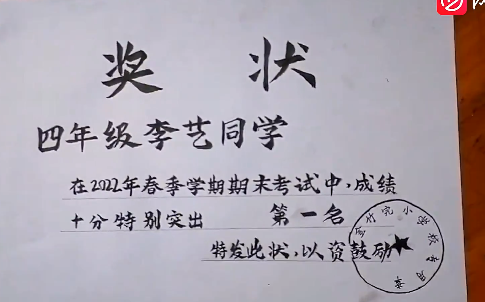 奖状
四年级李艺同学
在2022年春季学期期末考试中,成绩
十分特别突出 第一名
特发此状,以资鼓励
竹完小学校专用章